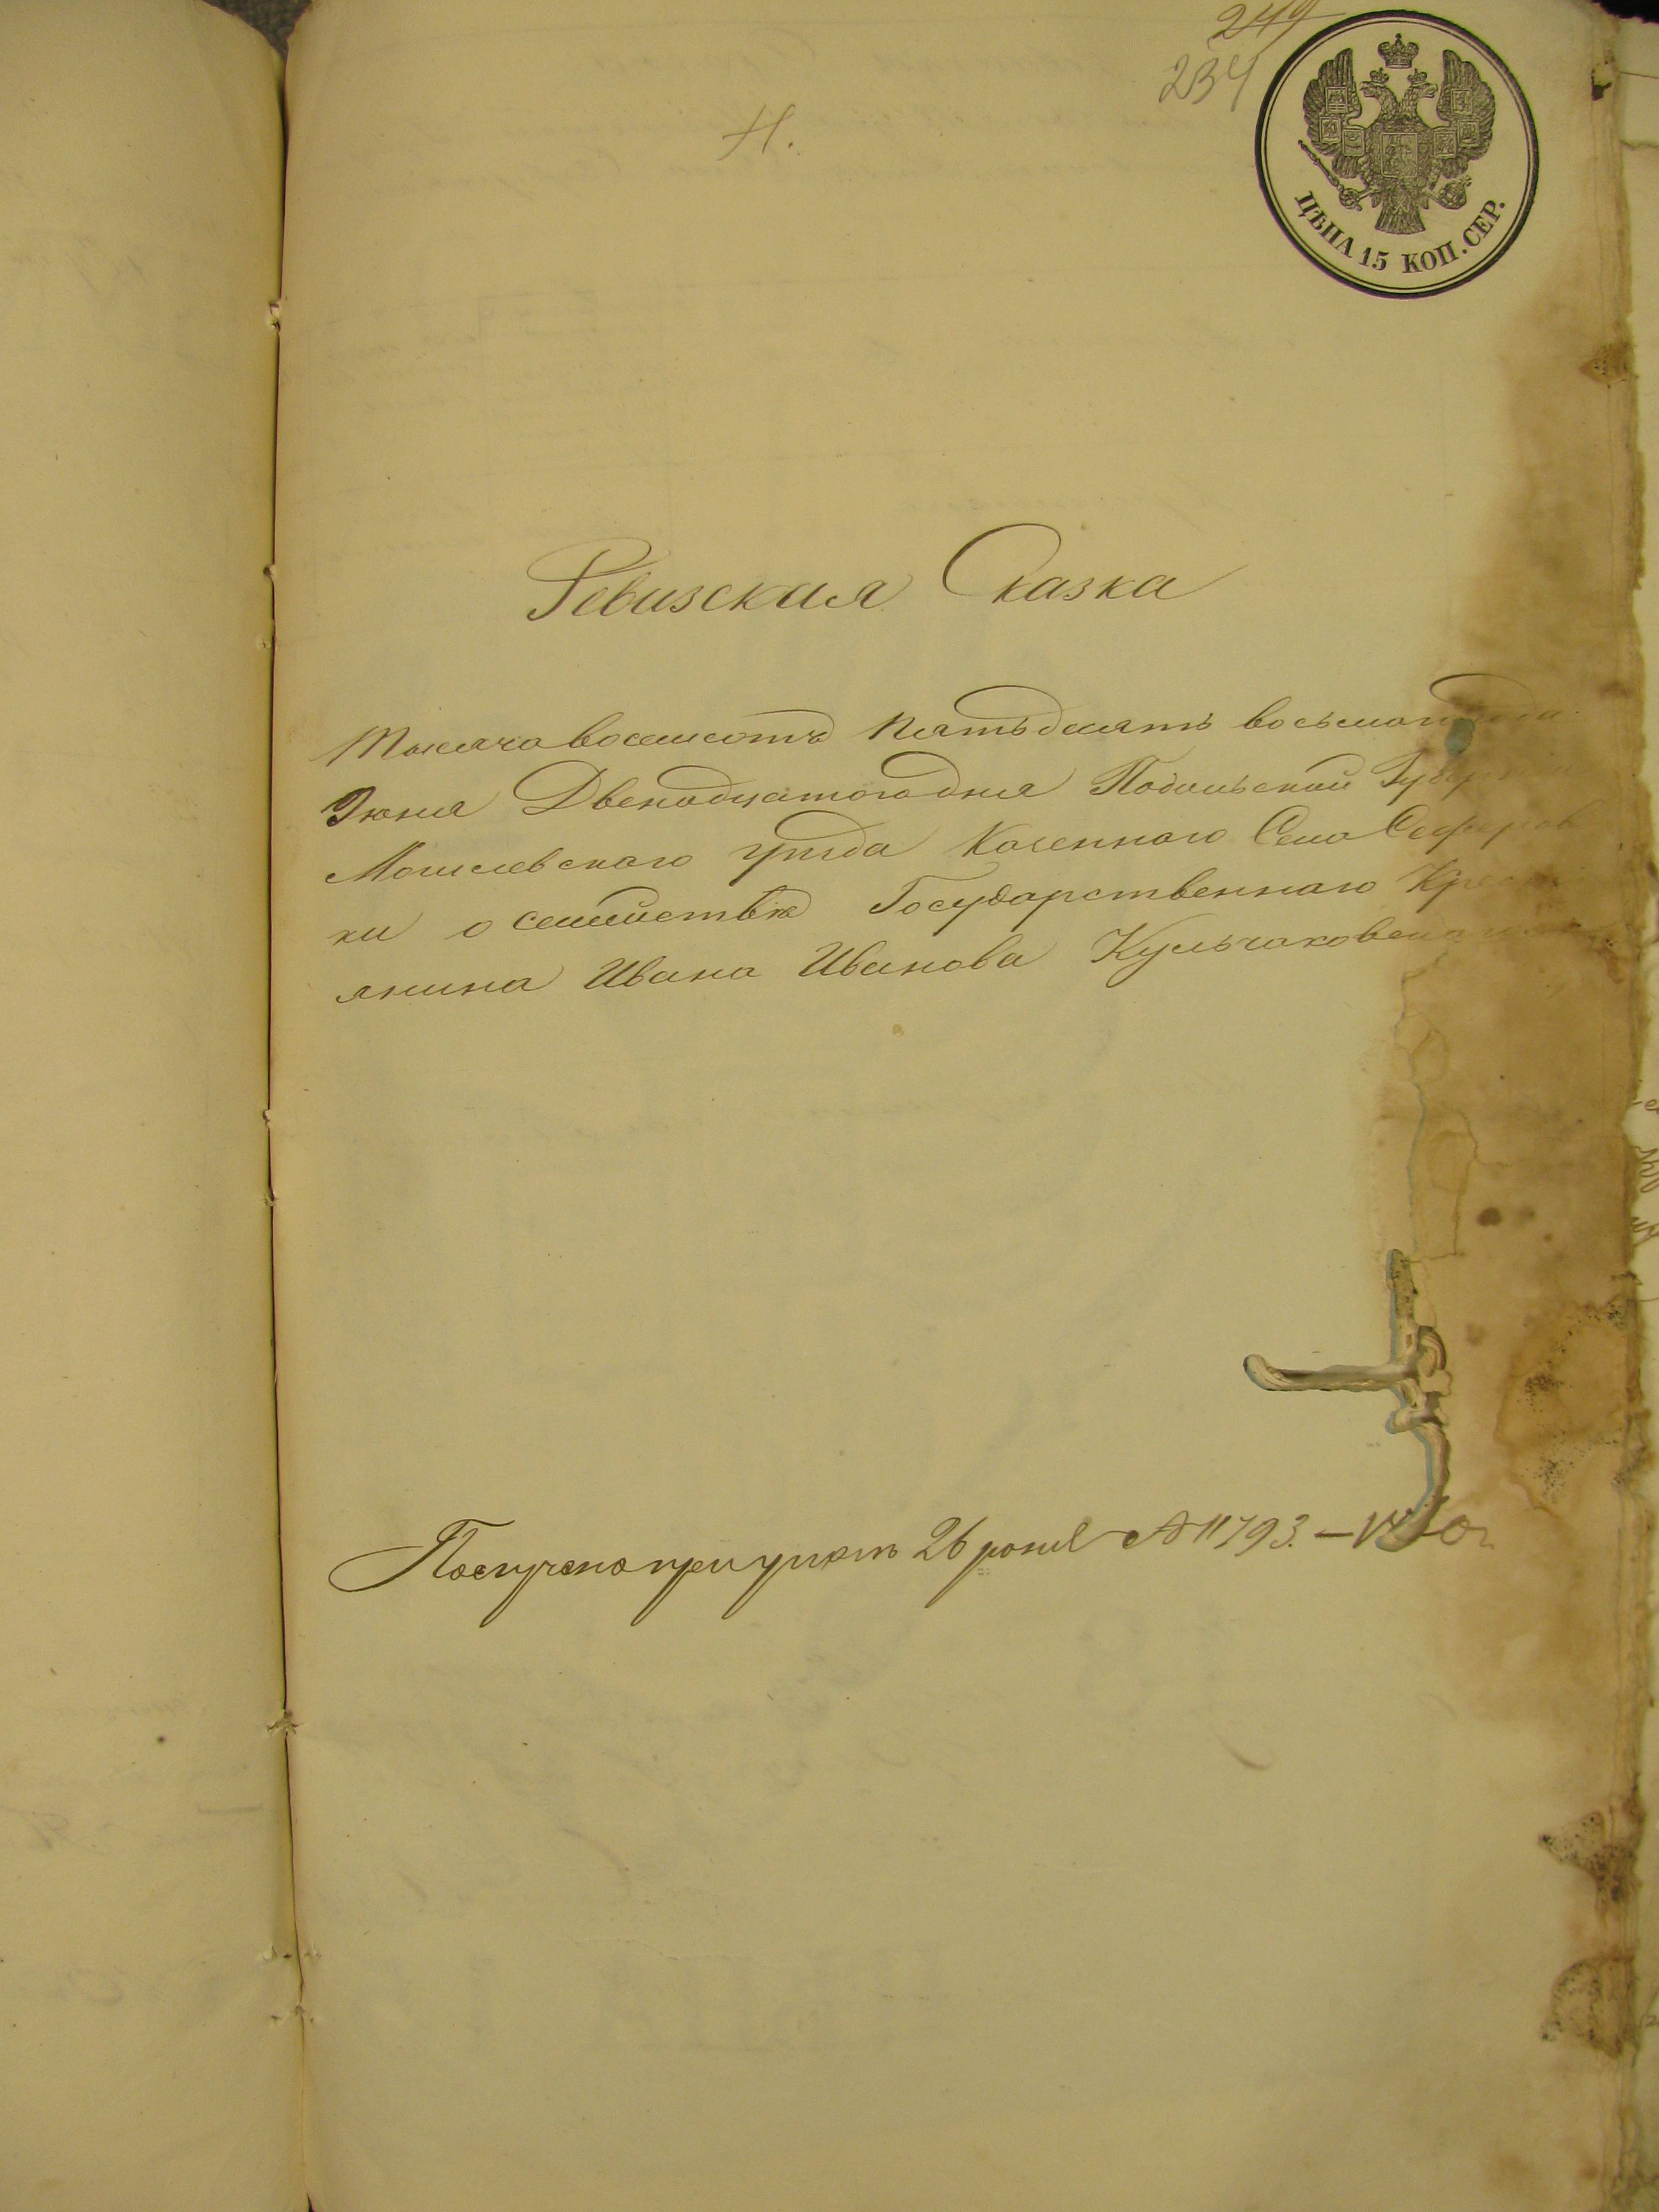 249
234
Н.
ЦѢНА 15 КОП. СЕР.
Ревизская Сказка
Тысяча восемсотъ пятьдесятъ восьмаго года
Июня Двенадцатого дня Подольской Губернии
Могилевскаго уезда Казенного Села Сеферов
ки о семействѣ Государственнаго Крест
янина Ивана Иванова Кульчаковскаго
при указѣ 26 июня № 11793.